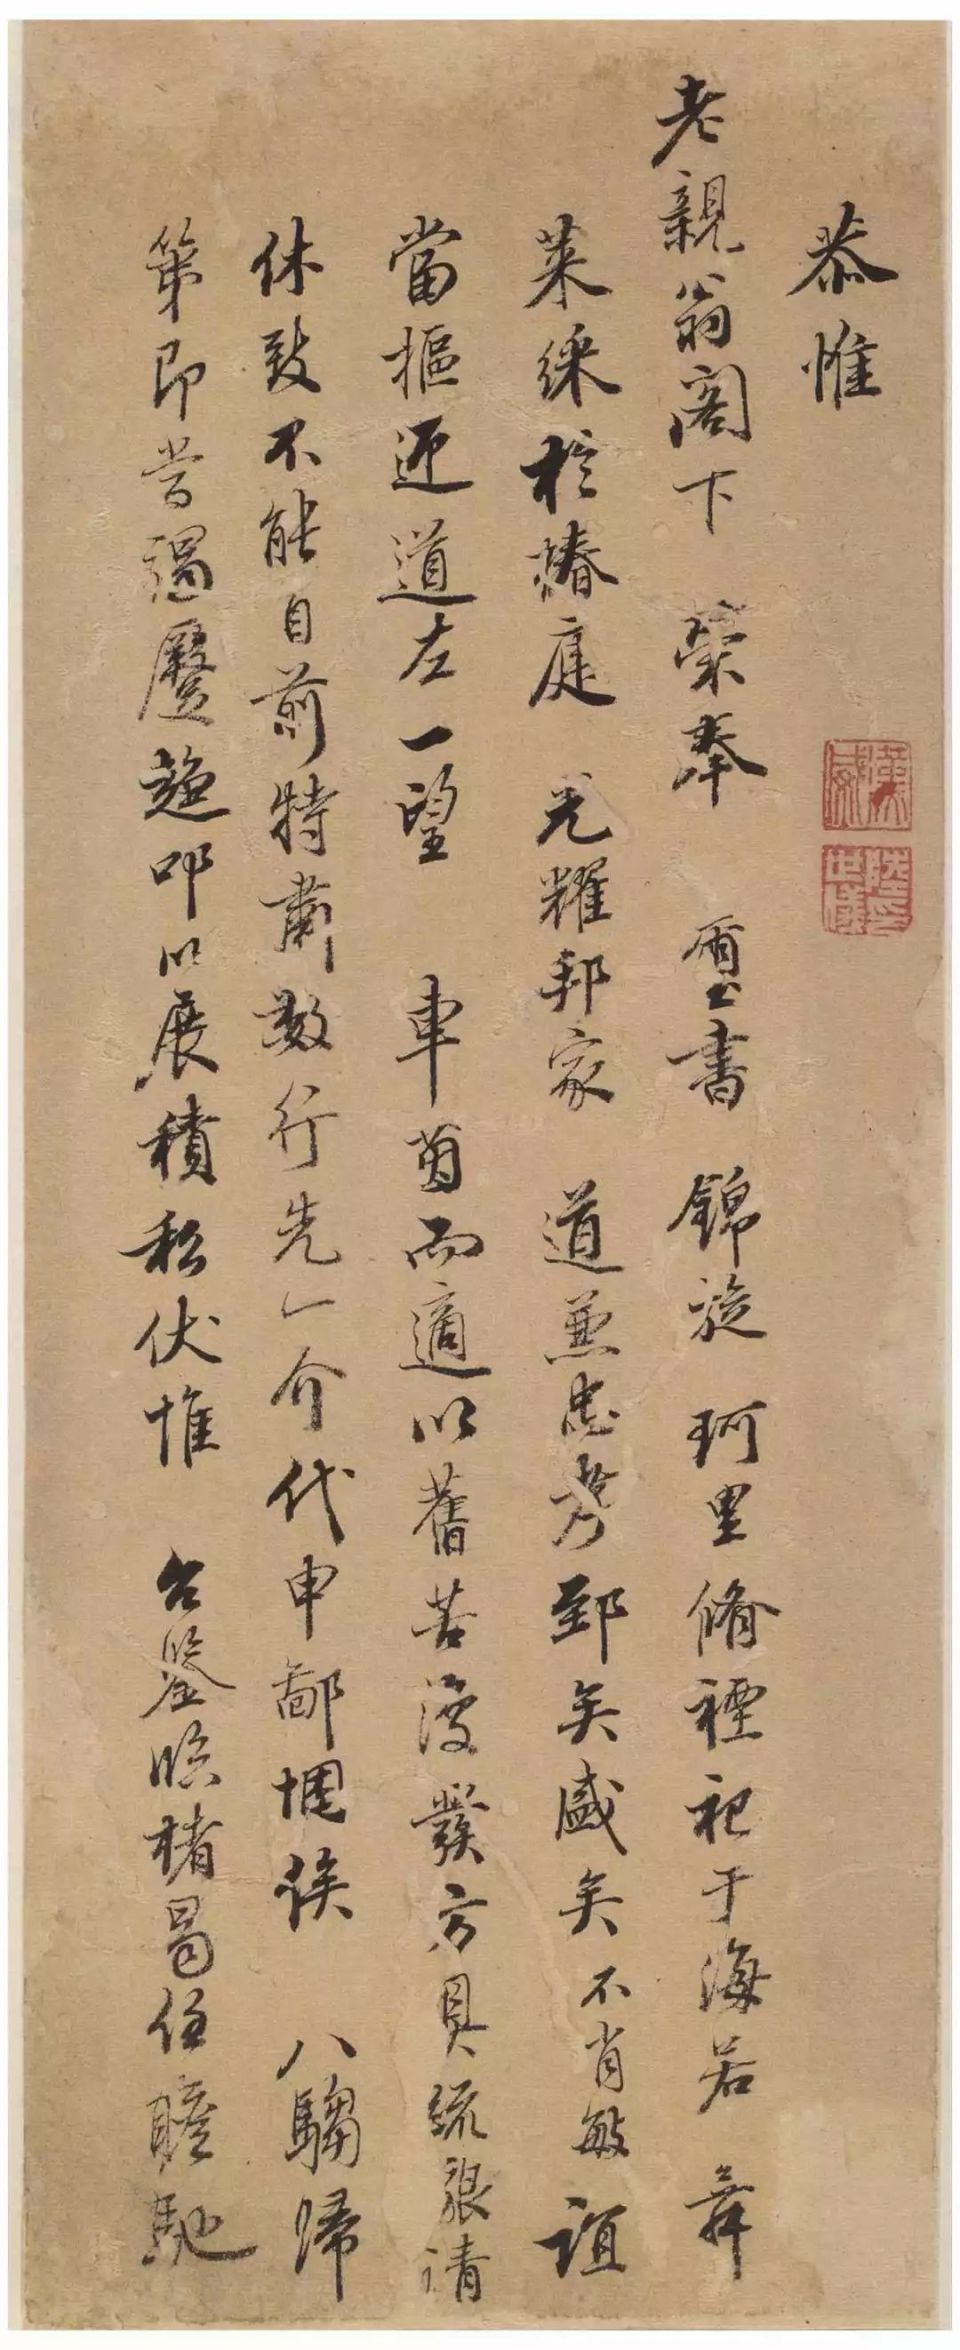 恭惟
老親翁閣下 榮奉 璽書 錦旋 珂里脩禋祀于海若 舞
萊綵於椿庭 光耀邦家 道兼忠孝郅矣盛矣不肖敏 誼
當摳迎道左一望 車茵而適以舊苦復發方具疏懇請
休致不能自前特肅數行先一介代申鄙悃俟 八騶歸
第即當過廬趨叩以展積私伏惟 台鑒臨楮曷任瞻馳
漢威
陸世儀印